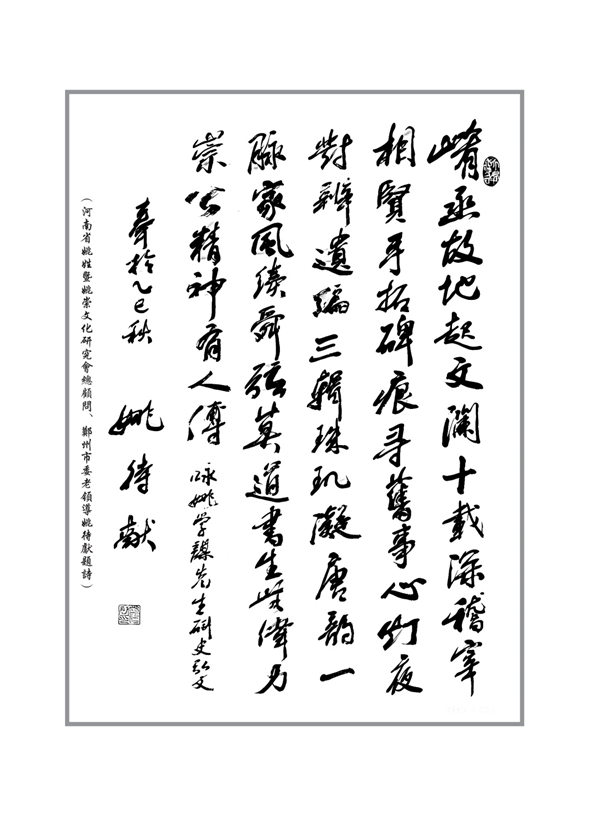 崤函故地起文瀾十載深稽宰
相賢手拓碑痕尋舊事心灯夜
對辨遺編三輯珠玑凝唐韵一
脉家風續舜弦莫道書生無偉力
崇公精神有人傳 咏姚学謀先生研史弘文
奉於乙巳秋 姚待献
（河南省姚姓暨姚崇文化研究會總顧問、鄭州市委老領導姚待獻題詩）